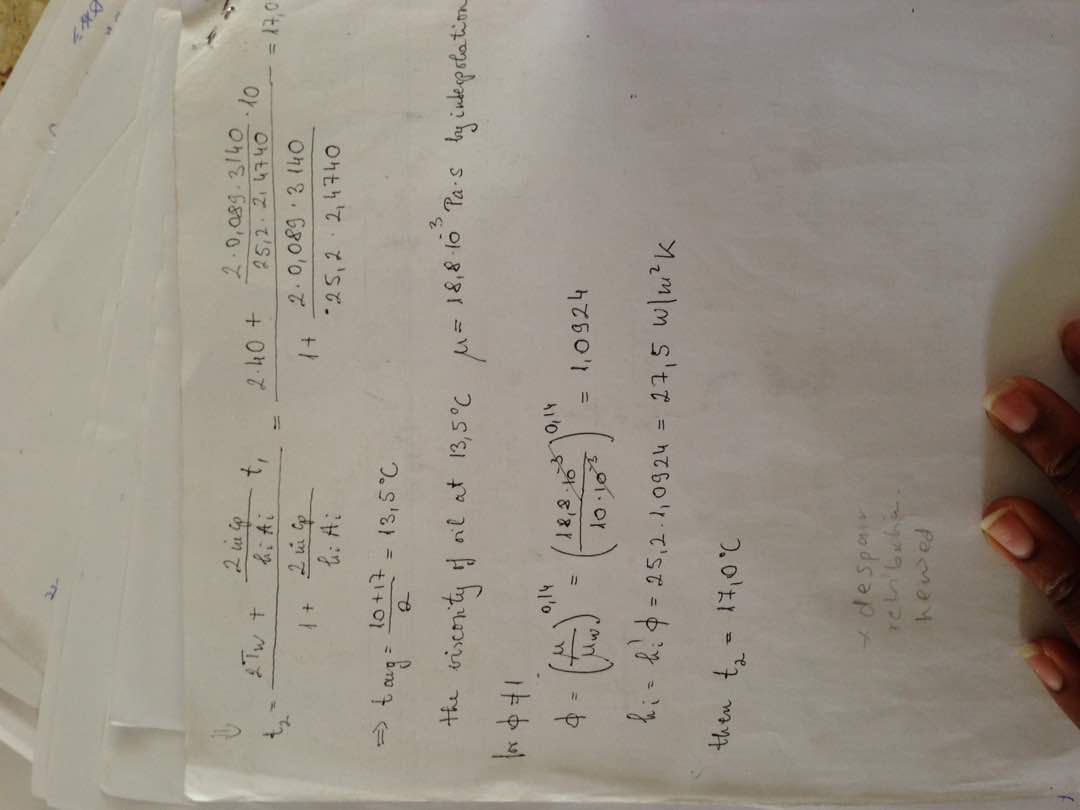 ⇓
t₂ = (2Tw + (2ṁcp / hᵢAᵢ) t₁) / (1 + 2ṁcp / hᵢAᵢ) = (2·40 + (2·0,089·3140 / 25,2·2,4740)·10) / (1 + 2·0,089·3140 / 25,2·2,4740) = 17,0
⇒ t avg = (10+17) / 2 = 13,5°C
the viscosity of oil at 13,5°C μ = 18,8·10⁻³ Pa·s by interpolation
for ϕ ≠ 1
ϕ = (μ / μw)^0,14 = (18,8·10⁻³ / 10·10⁻³)^0,14 = 1,0924
hᵢ = hᵢ' ϕ = 25,2·1,0924 = 27,5 W/m²K
then t₂ = 17,0°C
despair
hewed